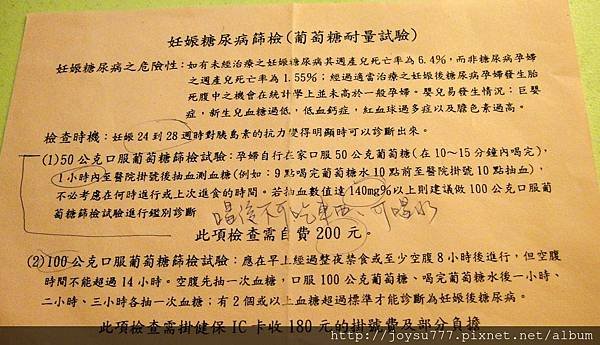 妊娠糖尿病篩檢(葡萄糖耐量試驗)
妊娠糖尿病之危險性:如有未經治療之妊娠糖尿病其週產兒死亡率為6.4%,而非糖尿病孕婦
之週產兒死亡率為1.55%;經過適當治療之妊娠後糖尿病孕婦發生胎
死腹中之機會在統計學上並未高於一般孕婦。嬰兒易發生情況:巨嬰
症,新生兒血糖過低,低血鈣症,紅血球過多症以及膽色素過高。
檢查時機:妊娠24到28週時對胰島素的抗力變得明顯時可以診斷出來。
(1)50公克口服葡萄糖篩檢試驗:孕婦自行在家口服50公克葡萄糖(在10~15分鐘內喝完),
1小時內至醫院掛號後抽血測血糖(例如:9點喝完葡萄糖水10點前至醫院掛號10點抽血),
不必考慮在何時進行或上次進食的時間。若抽血數值達140mg%以上則建議做100公克口服葡
萄糖篩檢試驗進行鑑別診斷
喝後不可吃東西、可喝水
此項檢查需自費200元。
(2)100公克口服葡萄糖篩檢試驗:應在早上經過整夜禁食或至少空腹8小時後進行,但空腹
時間不能超過14小時。空腹先抽一次血糖,口服100公克葡萄糖、喝完葡萄糖水後一小時、
二小時、三小時各抽一次血糖;有2個或以上血糖超過標準才能診斷為妊娠後糖尿病。
此項檢查需掛健保IC卡收180元的掛號費及部分負擔
http://joysu777.pixnet.net/album